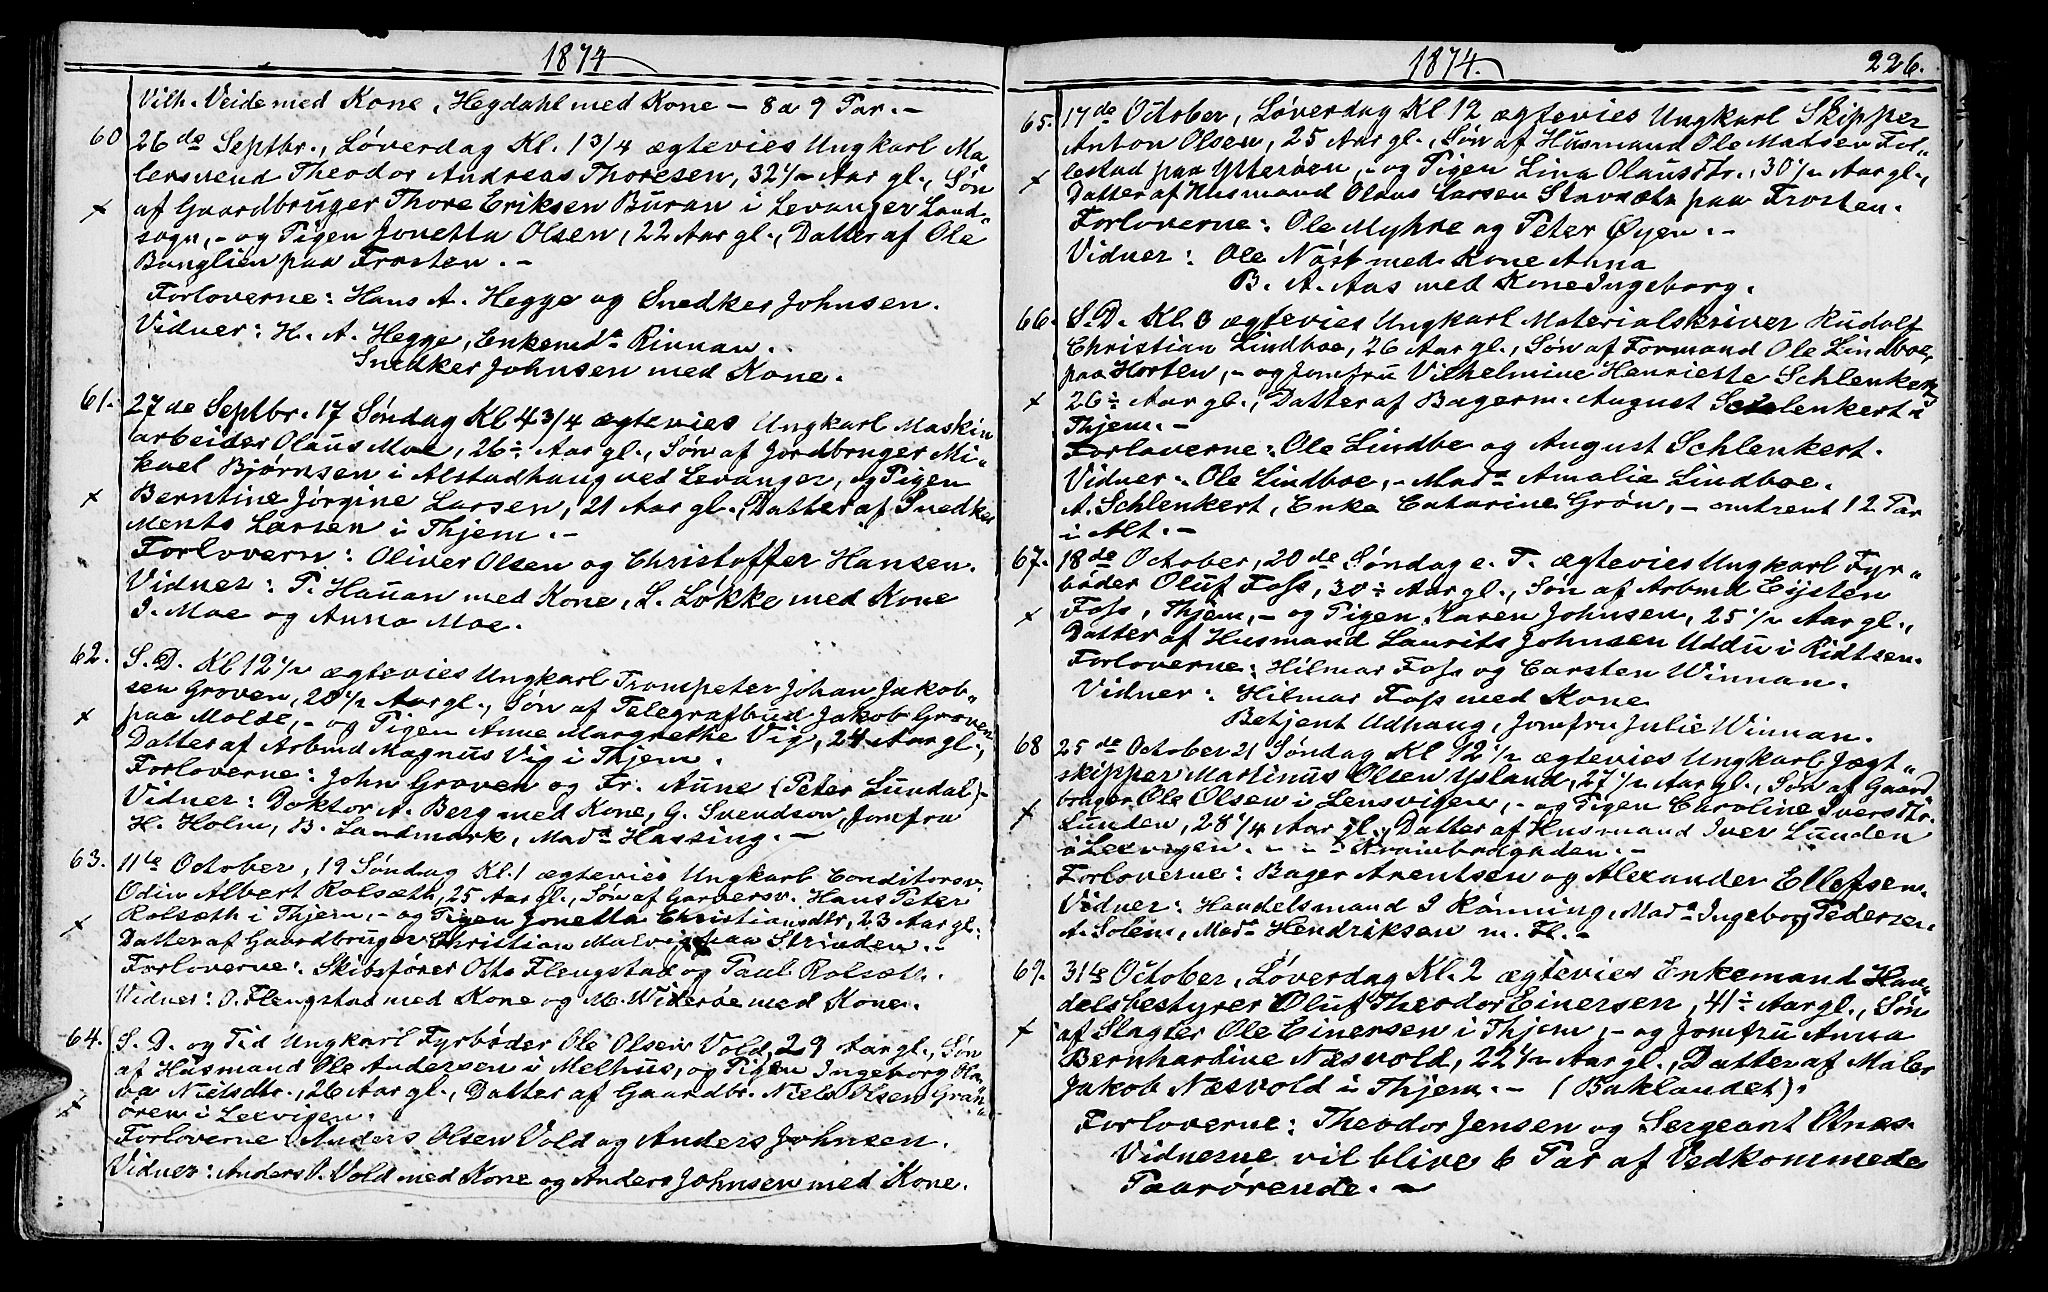 1874
Vilh. Veide med Kone, Hegdahl med Kone – 8 a 9 Par. –
60 26de Septbr., Løverdag Kl. 1 3/4 ægtevies Ungkarl Ma-
lersvend Theodor Andreas Thoresen, 32 1/2 Aar gl., Søn
x af Gaardbruger Thore Eriksen Buran i Levanger Land-
sogn, – og Pigen Jonetta Olsen, 22 Aar gl., Datter af Ole
Banglien paa Frosten. –
Forloverne: Hans A. Hegge og Snedker Johnsen.
Vidner: H. A. Hegge, Enkemd. Rinnan.
Snedker Johnsen med Kone.
61. 27de Septbr. 17 Søndag Kl 4 3/4 ægtevies Ungkarl Maskin
arbeider Olaus Moe, 26 ÷ Aar gl., Søn af Jordbruger Mi-
kael Bjørnsen i Alstadhaug ved Levanger, og Pigen
x Berntine Jørgine Larsen, 21 Aar gl., Datter af Snedker
Ments Larsen i Thjem. –
Forlovern: Oliver Olsen og Christoffer Hansen.
Vidner: P. Hauan med Kone, L. Løkke med Kone
I. Moe og Anna Moe.
62. S. D. Kl 12 1/2 ægtevies Ungkarl Trompeter Johan Jakob-
sen Groven, 28 1/2 Aar gl., Søn af Telegrafbud Jakob Groven
x paa Molde, – og Pigen Anne Margrethe Vig, 24 Aar gl.,
Datter af Arbmd Magnus Vig i Thjem.
Forloverne: John Groven og Fr. Aune (Peter Lundal) –
Vidner: Doktor A. Berg med Kone, G. Svendson, Jomfru
H. Holm, B. Landmark, Mada Hassing. –
63. 11te October, 19 Søndag Kl. 1 ægtevies Ungkarl Conditorsv.
Odin Albert Rolsæth, 25 Aar gl., Søn af Garversv. Hans Peter
x Rolsæth i Thjem, – og Pigen Jonetta Christiansdtr, 23 Aar gl.,
Datter af Gaardbruger Christian Malvig paa Strinden. –
Forloverne: Skibsfører Otto Flengstad og Paul Rolsæth.
Vidner: O. Flengstad med Kone og M. Widerøe med Kone.
64. S. D. og Tid Ungkarl Fyrbøder Ole Olsen Vold, 29 Aar gl., Søn
af Husmand Ole Andersen i Melhus, og Pigen Ingeborg Ola-
x va Nielsdtr., 26 Aar gl., Datter af Gaardbr. Niels Olsen Gran-
ören i Lexvigen.
Forloverne Anders Olsen Vold og Anders Johnsen.
Vidner: Anders O. Vold med Kone og Anders Johnsen med Kone.
1874. 226.
65. 17de October, Løverdag Kl 12 ægtevies Ungkarl Skipper
Anton Olsen, 25 Aar gl., Søn af Husmand Ole Matsen Fol-
x lestad paa Ytterøen, – og Pigen Lina Olausdtr., 30 1/2 Aar gl.,
Datter af Husmand Olaus Larsen Stavsætn paa Frosten.
Forloverne: Ole Myhre og Peter Øyen. –
Vidner: Ole Nøst med Kone Anna
B. A. Aas med Kone Ingeborg.
66. S. D. Kl. 3 ægtevies Ungkarl Materialskriver Rudolf
Christian Lindboe, 26 Aar gl., Søn af Formand Ole Lindboe,
paa Horten, – og Jomfru Vilhelmine Henriette Schlenkert,
x 26 ÷ Aar gl., Datter af Bagerm. August Schlenkert i
Thjem. –
Forloverne: Ole Lindbe og August Schlenkert.
Vidner: Ole Lindboe, – Mada Amalie Lindboe.
A. Schlenkert, Enke Catarine Grøn, – omtrent 12 Par
i Alt. –
67. 18de October, 20de Søndag e. T. ægtevies Ungkarl Fyr-
bøder Oluf Foss, 30 ÷ Aar gl., Søn af Arbmd Eysten
x Foss, Thjem, – og Pigen Karen Johnsen, 25 1/2 Aar gl.,
Datter af Husmand Laurits Johnsen Uddu i Ridtsen.
Forloverne: Hilmar Foss og Carsten Winnan.
Vidner: Hilmar Foss med Kone
Betjent Udhaug, Jomfru Julie Winnan.
68 25de October 21 Søndag Kl 12 1/2 ægtevies Ungkarl Jægt-
skipper Martinus Olsen Ysland, 27 1/2 Aar gl., Søn af Gaard
x bruger Ole Olsen i Lensvigen, – og Pigen Caroline Iversdtr.
Lunden, 28 1/4 Aar gl., Datter af Husmand Iver Lunden
i Lexvigen. – Krambodgaden. –
Forloverne: Bager Arentsen og Alexander Ellefsen.
Vidner: Handelsmand I Rønning, Mada Ingeborg Pedersen,
A. Solem, Mada Hendriksen m. Fl. –
69. 31te October, Løverdag Kl. 2 ægtevies Enkemand Han-
delsbestyrer Oluf Theodor Einersen, 41 ÷ Aar gl., Søn
x af Slagter Ole Einersen i Thjem, – og Jomfru Anna
Bernhardine Næsvold, 22 1/2 Aar gl., Datter af Maler
Jakob Næsvold i Thjem. – (Baklandet).
Forloverne: Theodor Jensen og Sergeant Otnæs.
Vidnerne vil blive 6 Par af Vedkommede
Paarørende. –